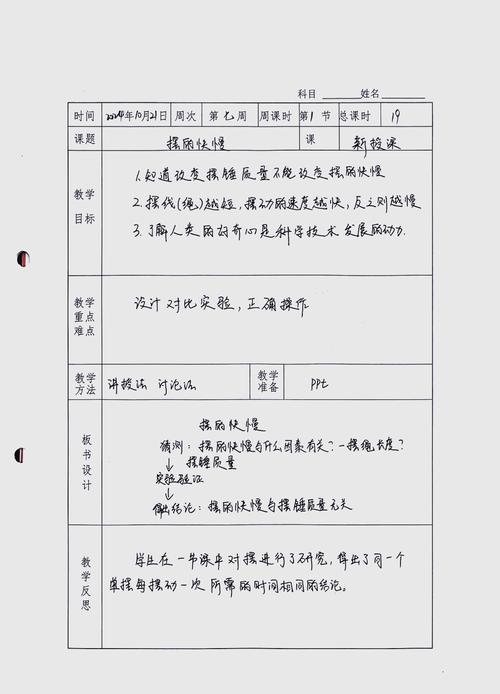 科目 姓名
时间 2024年10月21日 周次 第七周 周课时 第1节 总课时 19
课题 摆的快慢 课 新授课
教学目标
1.知道改变摆锤质量不能改变摆的快慢
2.摆线(绳)越短,摆动的速度越快,反之则越慢
3.了解人类的好奇心是科学技术发展的动力.
教学重点难点
设计对比实验,正确操作
教学方法 讲授法 讨论法 教学准备 PPt
板书设计
摆的快慢
猜测:摆的快慢与什么因素有关?—摆绳长度?
↓ 摆锤质量
实验验证
↓
得出结论:摆的快慢与摆锤质量无关
教学反思
学生在一节课中对摆进行了研究,得出了同一个
单摆每摆动一次所需的时间相同的结论。